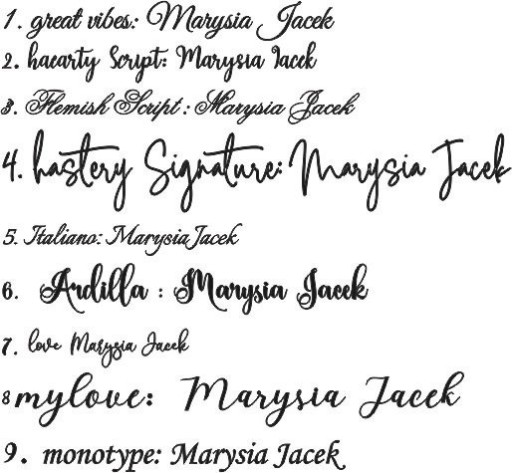 1. great vibes: Marysia Jacek
2. haearty Script: Marysia Jacek
3. Flemish Script : Marysia Jacek
4. hastery Signature: Marysia Jacek
5. Italiano: Marysia Jacek
6. Ardilla : Marysia Jacek
7. love Marysia Jacek
8 mylove: Marysia Jacek
9. monotype: Marysia Jacek